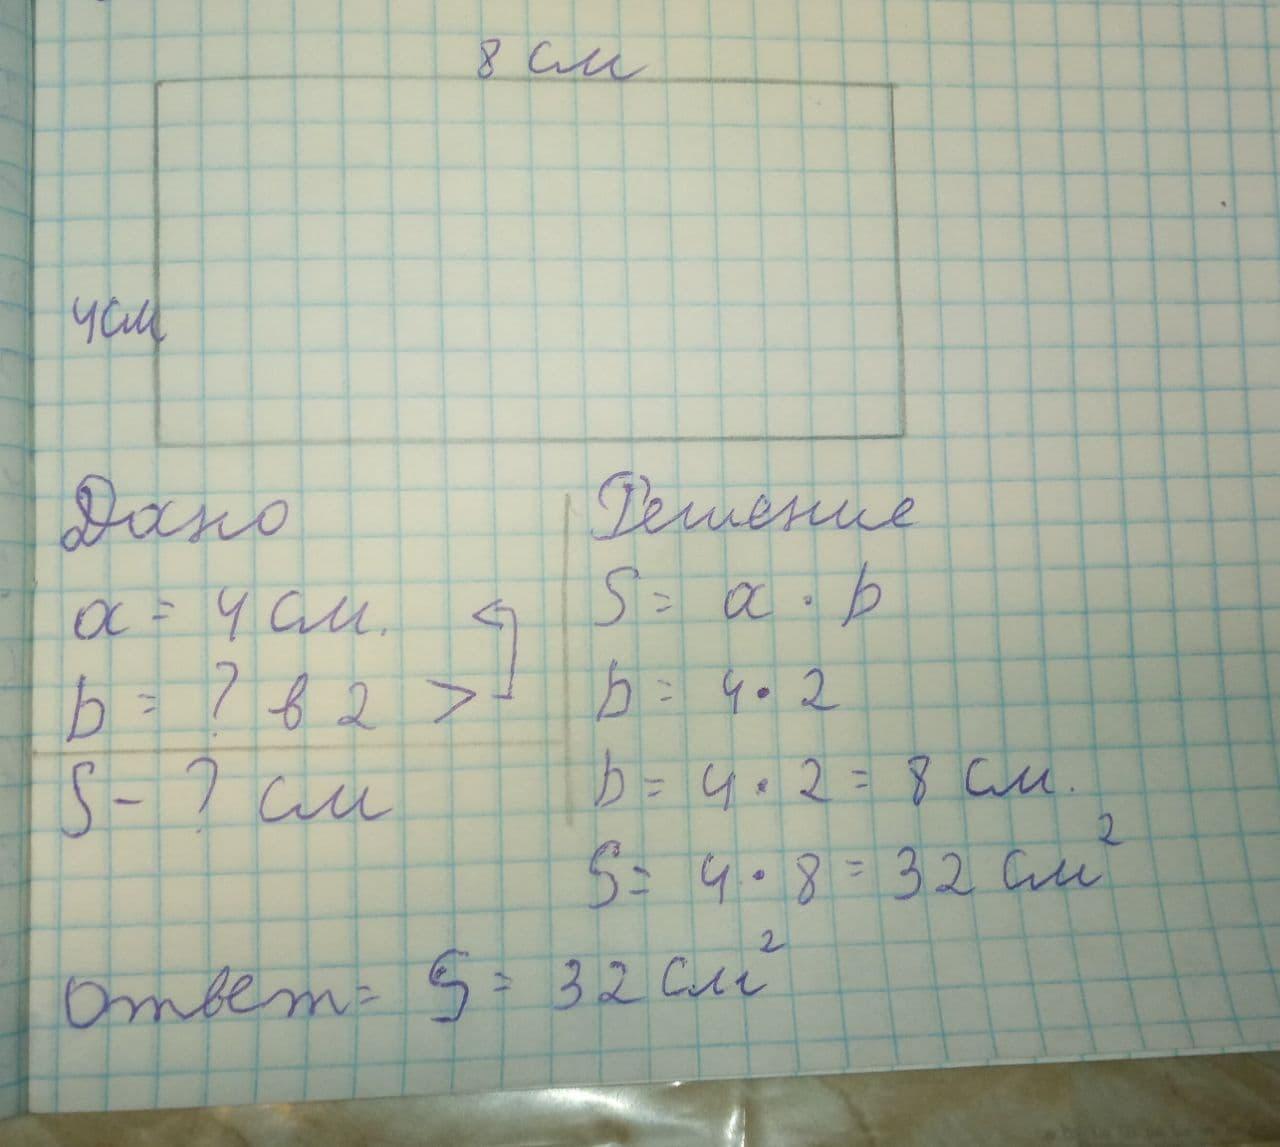 8 см
4см
Дано
a = 4 см.
b = ? в 2 >
S - ? см
Решение
S = a · b
b = 4 · 2
b = 4 · 2 = 8 см.
S = 4 · 8 = 32 см²
Ответ = S = 32 см²